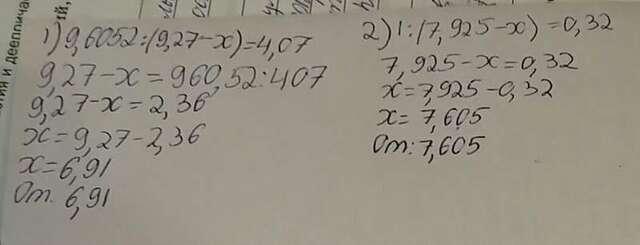 1) 9,6052:(9,27-x)=4,07
9,27-x=960,52:407
9,27-x=2,36
x=9,27-2,36
x=6,91
От. 6,91
2) 1:(7,925-x)=0,32
7,925-x=0,32
x=7,925-0,32
x=7,605
От: 7,605